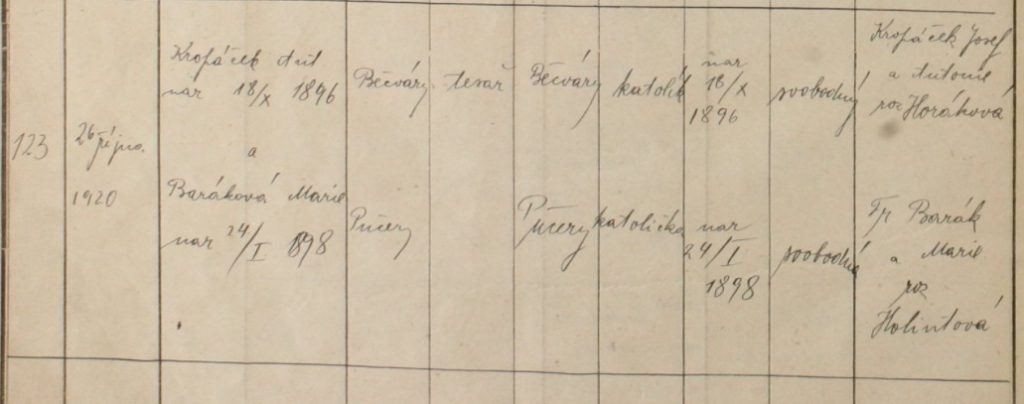 123
26 října
1920
Kropáček Ant
nar 18/X 1896
a
Baráková Marie
nar 24/I 1898
Běčváry
Pučery
tesař
Běčváry
Pučery
katolík
katolička
nar
18/X
1896
nar
24/I
1898
svobodný
svobodná
Kropáček Josef
a Antonie
roz Horáková
Fr Barák
a Marie
roz